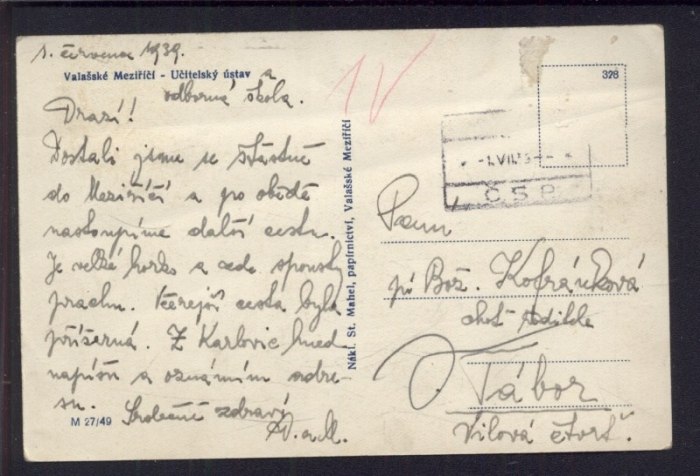 1. července 1939.
Valašské Meziříčí - Učitelský ústav a
odborná škola.
Drazí!!
Dostali jsme se šťastně
do Meziříčí a po obědě
nastoupíme další cestu.
Je velké horko a zde spousty
prachu. Včerejší cesta byla
příšerná. Z Karlovic hned
napíši a oznámím adre-
su. Srdečně zdraví
M 27/49
Nákl. St. Mahel, papírnictví, Valašské Meziříčí
IV
328
-1.VII.
ČSP
Paní
pí Bož. Kofránková
choť ředitele
Tábor
Vilová čtvrť.